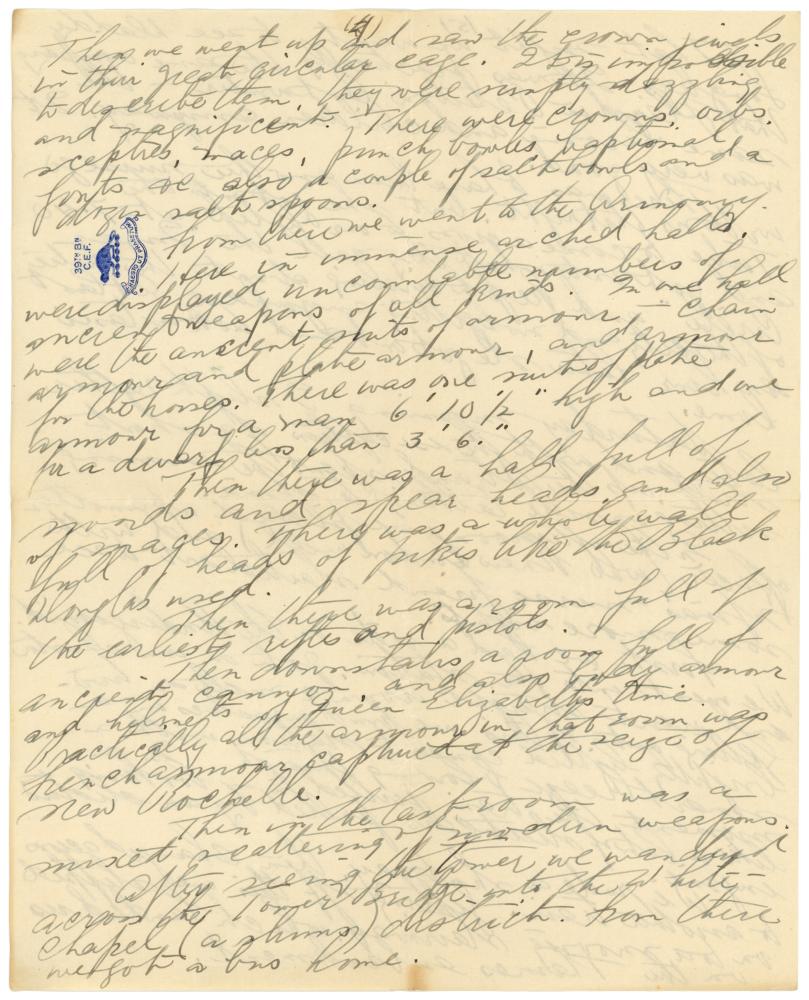 (4)
Then we went up and saw the crown jewels
in their great circular cage. It is impossible
to describe them, they were simply dazzling
and magnificent. There were crowns, orbs,
sceptres, maces, punch bowls, baptismal
fonts &c also a couple of salt bowls and a
dozen salt spoons.
39TH BN
C.E.F.
From there we went to the Armoury.
Here in immense arched halls
were displayed uncountable numbers of
ancient weapons of all kinds. In one hall
were the ancient suits of armour, chain
armour and plate armour, and armour
for the horses. There was one suit of plate
armour for a man 6' 10 1/2" high and one
for a dwarf less than 3' 6."
Then there was a hall full of
swords and spear heads and also
of maces. There was a whole wall
full of heads of pikes like the Black
Douglas used.
Then there was a room full of
the earliest rifles and pistols.
Then downstairs a room full of
ancient cannon and also body armour
and helmets of Queen Elizabeths time.
Practically all the armour in that room was
French armour captured at the seige of
New Rochelle.
Then in the last room was a
mixed scattering of modern weapons.
After seeing the tower we wandered
across the Tower Bridge into the White-
chapel (a slums) district. From there
we got a bus home.